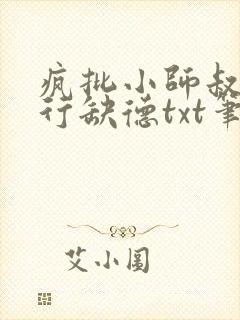 疯批小师叔
行缺德txt笔
艾小图